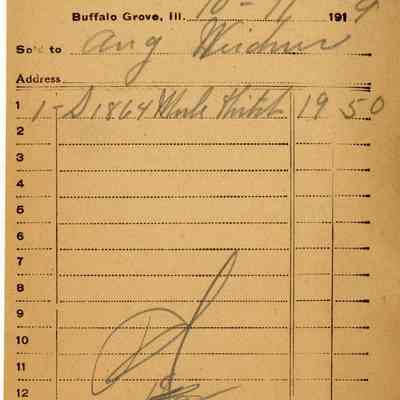 Buffalo Grove, Ill. 10-11 1919
Sold to Aug Weidner
Address
1 1-D 1864 19 50
2
3
4
5
6
7
8
9
10
11
12